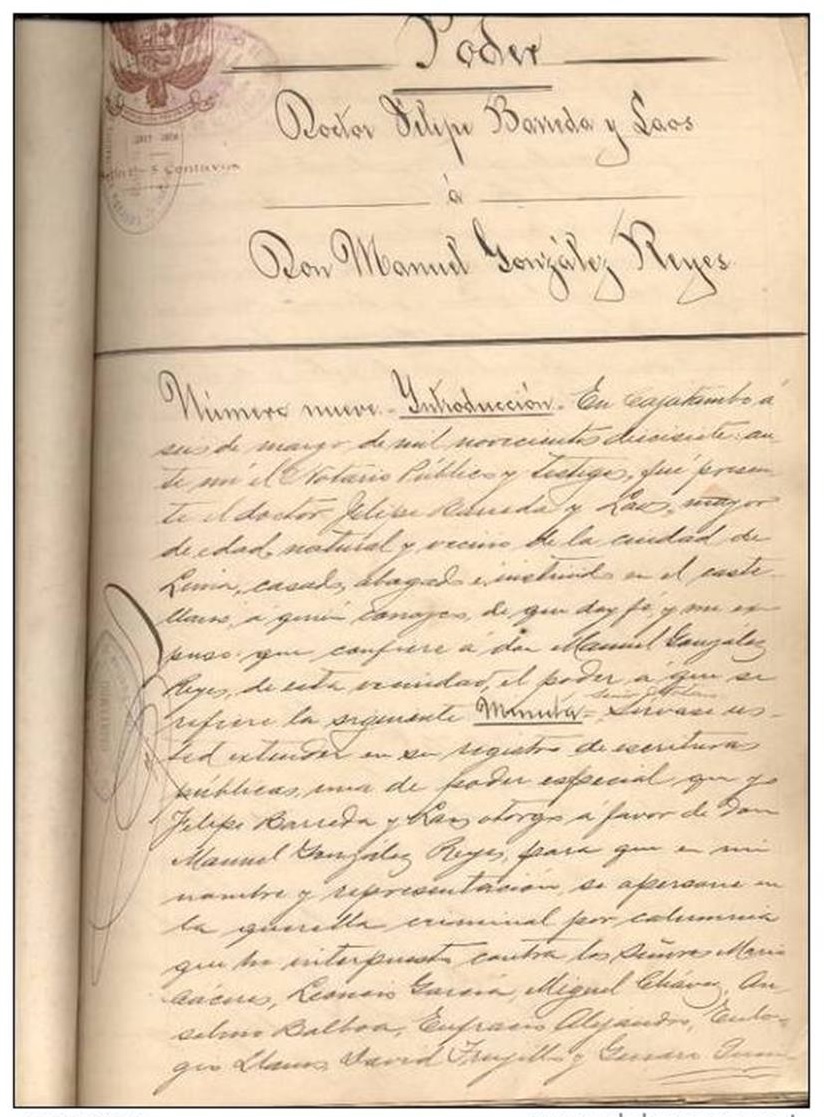 Poder
Doctor Felipe Barreda y Laos
á
Don Manuel González Reyes
Sello 6º 5 Centavos
Número nueve.- Introducción.- En Cajatambo á
seis de marzo de mil novecientos diecisiete: an
te mí el Notario Público y testigos, fué presen
te el doctor Felipe Barreda y Laos, mayor
de edad, natural y vecino de la ciudad de
Lima, casado, abogado é instruido en el caste
llano, á quien conozco, de que doy fé; y me ex
puso: que confiere á don Manuel González
Reyes, de esta vecindad, el poder á que se
refiere la siguiente Minuta.- señor Notario Sírvase us-
ted extender en su registro de escrituras
públicas, una de poder especial que yo
Felipe Barreda y Laos otorgo á favor de don
Manuel González Reyes, para que en mi
nombre y representación, se apersone en
la querella criminal por calumnia
que he interpuesto contra los señores Mario
Cáceres, Leoncio García, Miguel Chávez, An
selmo Balboa, Eufracio Alejandro, Eulo-
gio Llanos, David Trujillo y Genaro